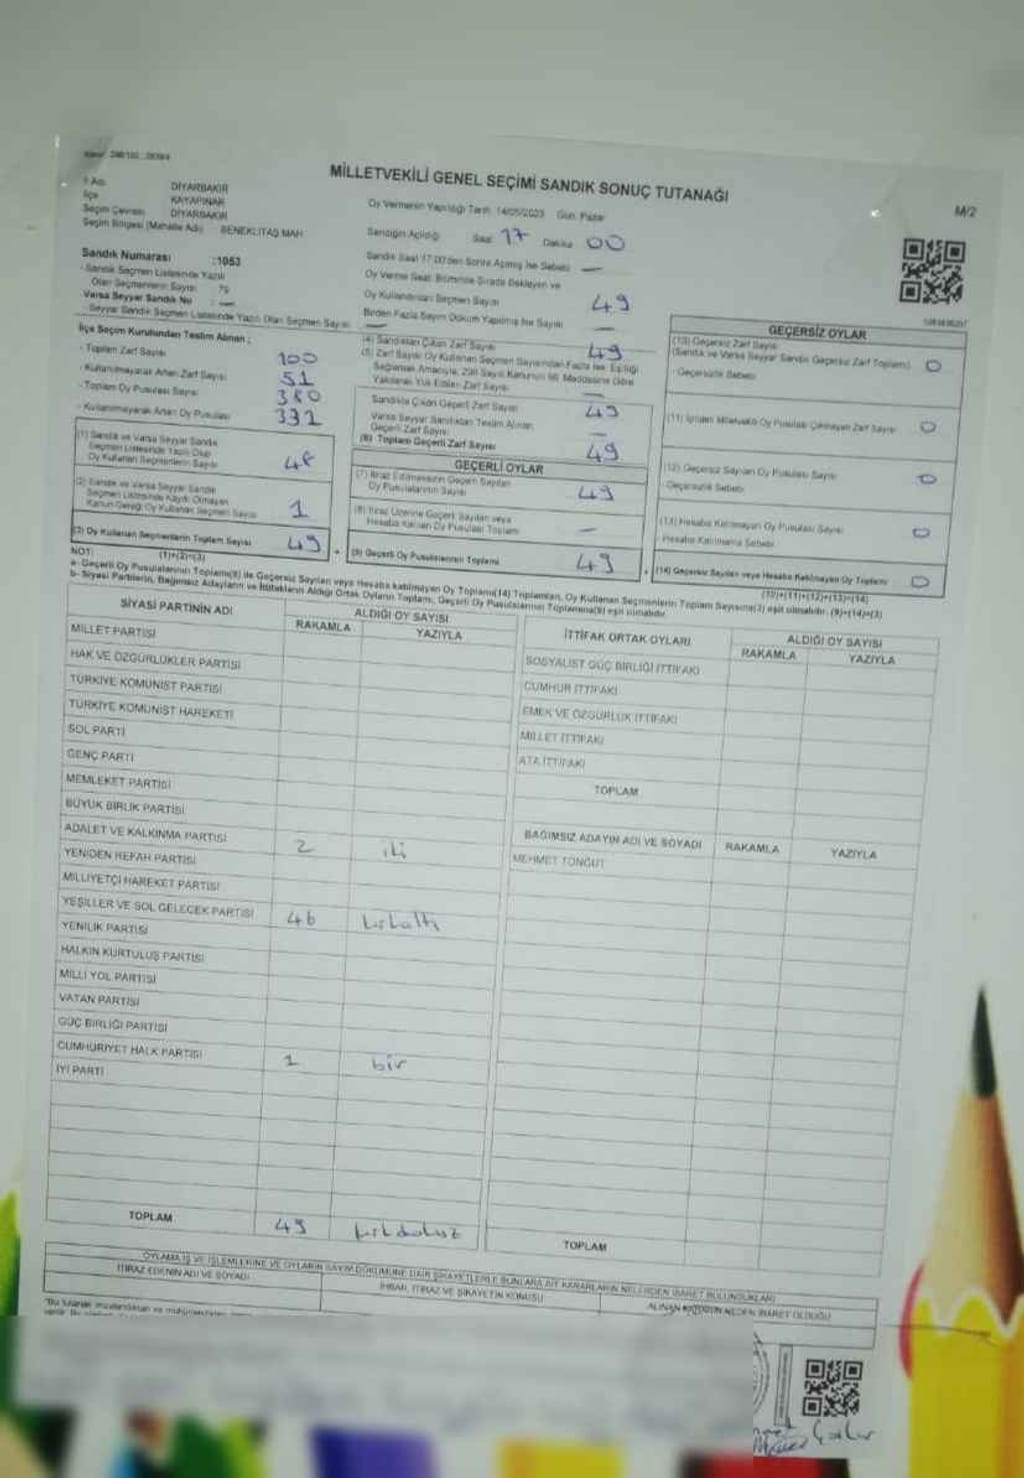 MİLLETVEKİLİ GENEL SEÇİMİ SANDIK SONUÇ TUTANAĞI
M/2
İl Adı DİYARBAKIR
İlçe KAYAPINAR
Seçim Çevresi DİYARBAKIR
Seçim Bölgesi (Mahalle Adı) BENEKLİTAŞ MAH.
Sandık Numarası :1053
- Sandık Seçmen Listesinde Yazılı
Olan Seçmenlerin Sayısı 79
Varsa Seyyar Sandık No : —
- Seyyar Sandık Seçmen Listesinde Yazılı Olan Seçmen Sayısı —
Oy Vermenin Yapıldığı Tarih: 14/05/2023 Gün: Pazar
Sandığın Açıldığı Saat 17 Dakika 00
Sandık Saat 17.00'den Sonra Açılmış İse Sebebi —
Oy Verme Saati Bitiminde Sırada Bekleyen ve
Oy Kullandırılan Seçmen Sayısı 49
Birden Fazla Sayım Döküm Yapılmış İse Sayısı —
İlçe Seçim Kurulundan Teslim Alınan :
- Toplam Zarf Sayısı 100
- Kullanılmayarak Artan Zarf Sayısı 51
- Toplam Oy Pusulası Sayısı 380
- Kullanılmayarak Artan Oy Pusulası 332
(1) Sandık ve Varsa Seyyar Sandık
Seçmen Listesinde Yazılı Olup
Oy Kullanan Seçmenlerin Sayısı 48
(2) Sandık ve Varsa Seyyar Sandık
Seçmen Listesinde Kaydı Olmayan
Kanun Gereği Oy Kullanan Seçmen Sayısı 1
(3) Oy Kullanan Seçmenlerin Toplam Sayısı 49
(1)+(2)=(3)
(4) Sandıktan Çıkan Zarf Sayısı 49
(5) Zarf Sayısı Oy Kullanan Seçmen Sayısından Fazla İse, Eşitliği
Sağlamak Amacıyla, 298 Sayılı Kanunun 98. Maddesine Göre
Yakılarak Yok Edilen Zarf Sayısı —
Sandıkta Çıkan Geçerli Zarf Sayısı 49
Varsa Seyyar Sandıktan Teslim Alınan
Geçerli Zarf Sayısı —
(6) Toplam Geçerli Zarf Sayısı 49
GEÇERLİ OYLAR
(7) İtiraz Edilmeksizin Geçerli Sayılan
Oy Pusulalarının Sayısı 49
(8) İtiraz Üzerine Geçerli Sayılan veya
Hesaba Katılan Oy Pusulası Toplamı —
(9) Geçerli Oy Pusulalarının Toplamı 49
GEÇERSİZ OYLAR
(10) Geçersiz Zarf Sayısı
(Sandık ve Varsa Seyyar Sandık Geçersiz Zarf Toplamı) 0
- Geçersizlik Sebebi
(11) İçinden Milletvekili Oy Pusulası Çıkmayan Zarf Sayısı 0
(12) Geçersiz Sayılan Oy Pusulası Sayısı 0
- Geçersizlik Sebebi
(13) Hesaba Katılmayan Oy Pusulası Sayısı 0
- Hesaba Katılmama Sebebi
(14) Geçersiz Sayılan veya Hesaba Katılmayan Oy Toplamı 0
(10)+(11)+(12)+(13)=(14)
NOT:
a- Geçerli Oy Pusulalarının Toplamı(9) ile Geçersiz Sayılan veya Hesaba katılmayan Oy Toplamı(14) Toplamları, Oy Kullanan Seçmenlerin Toplam Sayısına(3) eşit olmalıdır. (9)+(14)=(3)
b- Siyasi Partilerin, Bağımsız Adayların ve İttifakların Aldığı Ortak Oyların Toplamı, Geçerli Oy Pusulalarının Toplamına(9) eşit olmalıdır.
SİYASİ PARTİNİN ADI ALDIĞI OY SAYISI
RAKAMLA YAZIYLA
MİLLET PARTİSİ
HAK VE ÖZGÜRLÜKLER PARTİSİ
TÜRKİYE KOMÜNİST PARTİSİ
TÜRKİYE KOMÜNİST HAREKETİ
SOL PARTİ
GENÇ PARTİ
MEMLEKET PARTİSİ
BÜYÜK BİRLİK PARTİSİ
ADALET VE KALKINMA PARTİSİ 2 iki
YENİDEN REFAH PARTİSİ
MİLLİYETÇİ HAREKET PARTİSİ
YEŞİLLER VE SOL GELECEK PARTİSİ 46 kırkaltı
YENİLİK PARTİSİ
HALKIN KURTULUŞ PARTİSİ
MİLLİ YOL PARTİSİ
VATAN PARTİSİ
GÜÇ BİRLİĞİ PARTİSİ
CUMHURİYET HALK PARTİSİ 1 bir
İYİ PARTİ
TOPLAM 49 kırkdokuz
İTTİFAK ORTAK OYLARI ALDIĞI OY SAYISI
RAKAMLA YAZIYLA
SOSYALİST GÜÇ BİRLİĞİ İTTİFAKI
CUMHUR İTTİFAKI
EMEK VE ÖZGÜRLÜK İTTİFAKI
MİLLET İTTİFAKI
ATA İTTİFAKI
TOPLAM
BAĞIMSIZ ADAYIN ADI VE SOYADI RAKAMLA YAZIYLA
MEHMET TONGUT
TOPLAM
OYLAMA İŞ VE İŞLEMLERİNE VE OYLARIN SAYIM DÖKÜMÜNE DAİR ŞİKAYETLERLE BUNLARA AİT KARARLARIN NELERDEN İBARET BULUNDUKLARI
İTİRAZ EDENİN ADI VE SOYADI İHBAR, İTİRAZ VE ŞİKAYETİN KONUSU ALINAN KARARIN NEDEN İBARET OLDUĞU